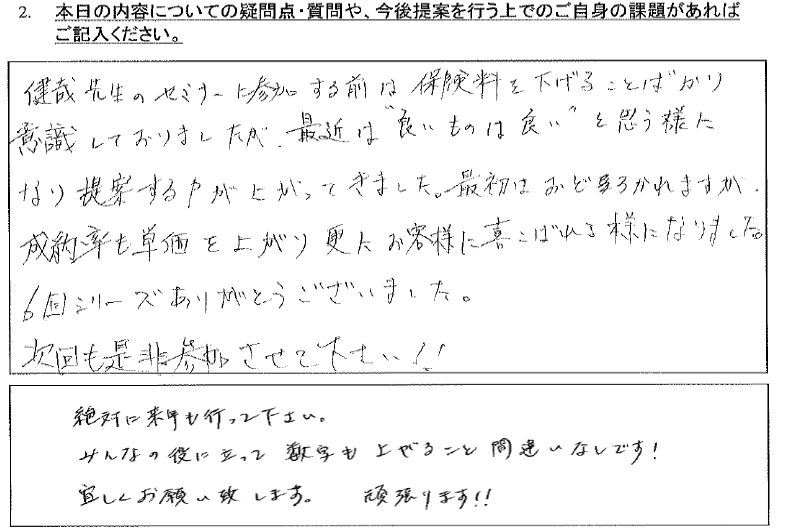 2. 本日の内容についての疑問点・質問や、今後提案を行う上でのご自身の課題があれば
ご記入ください。
健哉先生のセミナーに参加する前は保険料を下げることばかり
意識しておりましたが、最近は"良いものは良い"と思う様に
なり提案する力が上がってきました。最初はおどろかれますが、
成約率も単価を上がり更にお客様に喜こばれる様になりました。
6回シリーズありがとうございました。
次回も是非参加させて下さい!!
絶対に来年も行って下さい。
みんなの役に立って数字も上がること間違いなしです!
宜しくお願い致します。 頑張ります!!